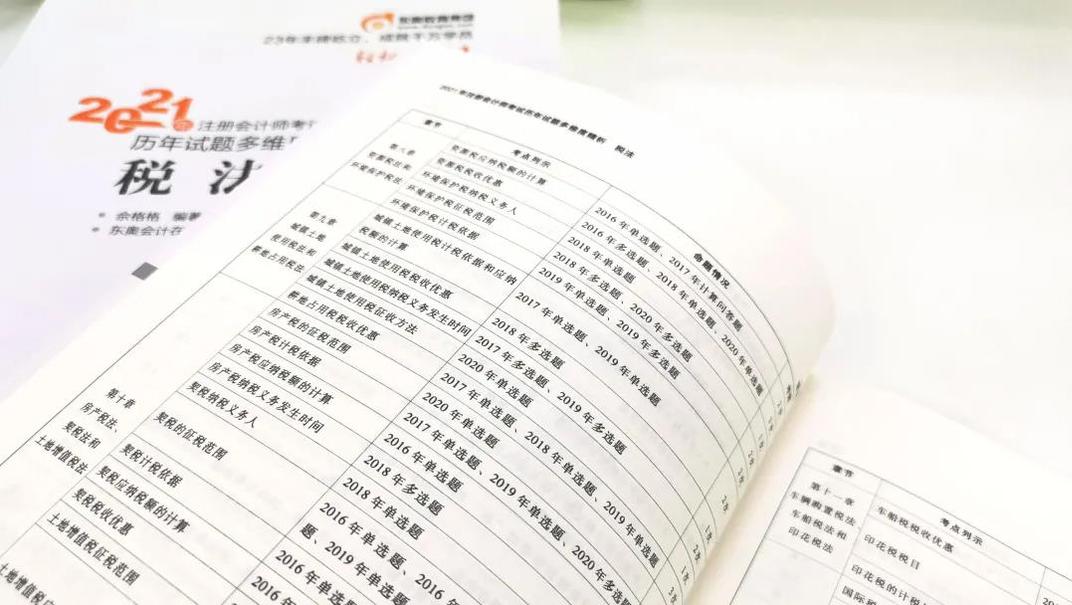 东奥教育集团
23年主牌屹立，成就千万学员
2021年
注册会计师考
历年试题多维
税法
余格格 编著
东奥会计在
2021年注册会计师考试历年试题多维度精析 税法
章节 考点列示 命题情况
第八章
资源税法和
环境保护税法
资源税应纳税额的计算 2016年单选题、2017年计算问答题
资源税税收优惠 2016年多选题、2018年单选题、2020年单选题
环境保护税纳税义务人 2018年单选题
环境保护税征税范围 2018年多选题、2020年多选题
环境保护税计税依据 2019年单选题、2019年多选题
第九章
城镇土地
使用税法和
耕地占用税法
城镇土地使用税计税依据和应纳
税额的计算 2017年单选题、2019年单选题
城镇土地使用税税收优惠 2018年多选题
城镇土地使用税纳税义务发生时间 2017年多选题、2019年多选题
城镇土地使用税征收方法 2020年单选题
耕地占用税税收优惠 2017年单选题、2018年单选题、2019年单选题
第十章
房产税法、
契税法和
土地增值税法
房产税的征税范围 2020年单选题
房产税计税依据 2017年单选题、2019年单选题、2020年多选
房产税应纳税额的计算 2016年单选题
房产税纳税义务发生时间 2018年多选题
契税纳税义务人 2018年单选题
契税的征税范围 2016年单选题、2016年
题、2019年单选题
契税计税依据 2016年单选
契税应纳税额的计算 2016年
契税税收优惠
土地增值税征税范围
土地增值税应
章节 考点列示
第十一章
车辆购置税法、
车船税法和
印花税法
车船税税收优惠
印花税税目
印花税的计税